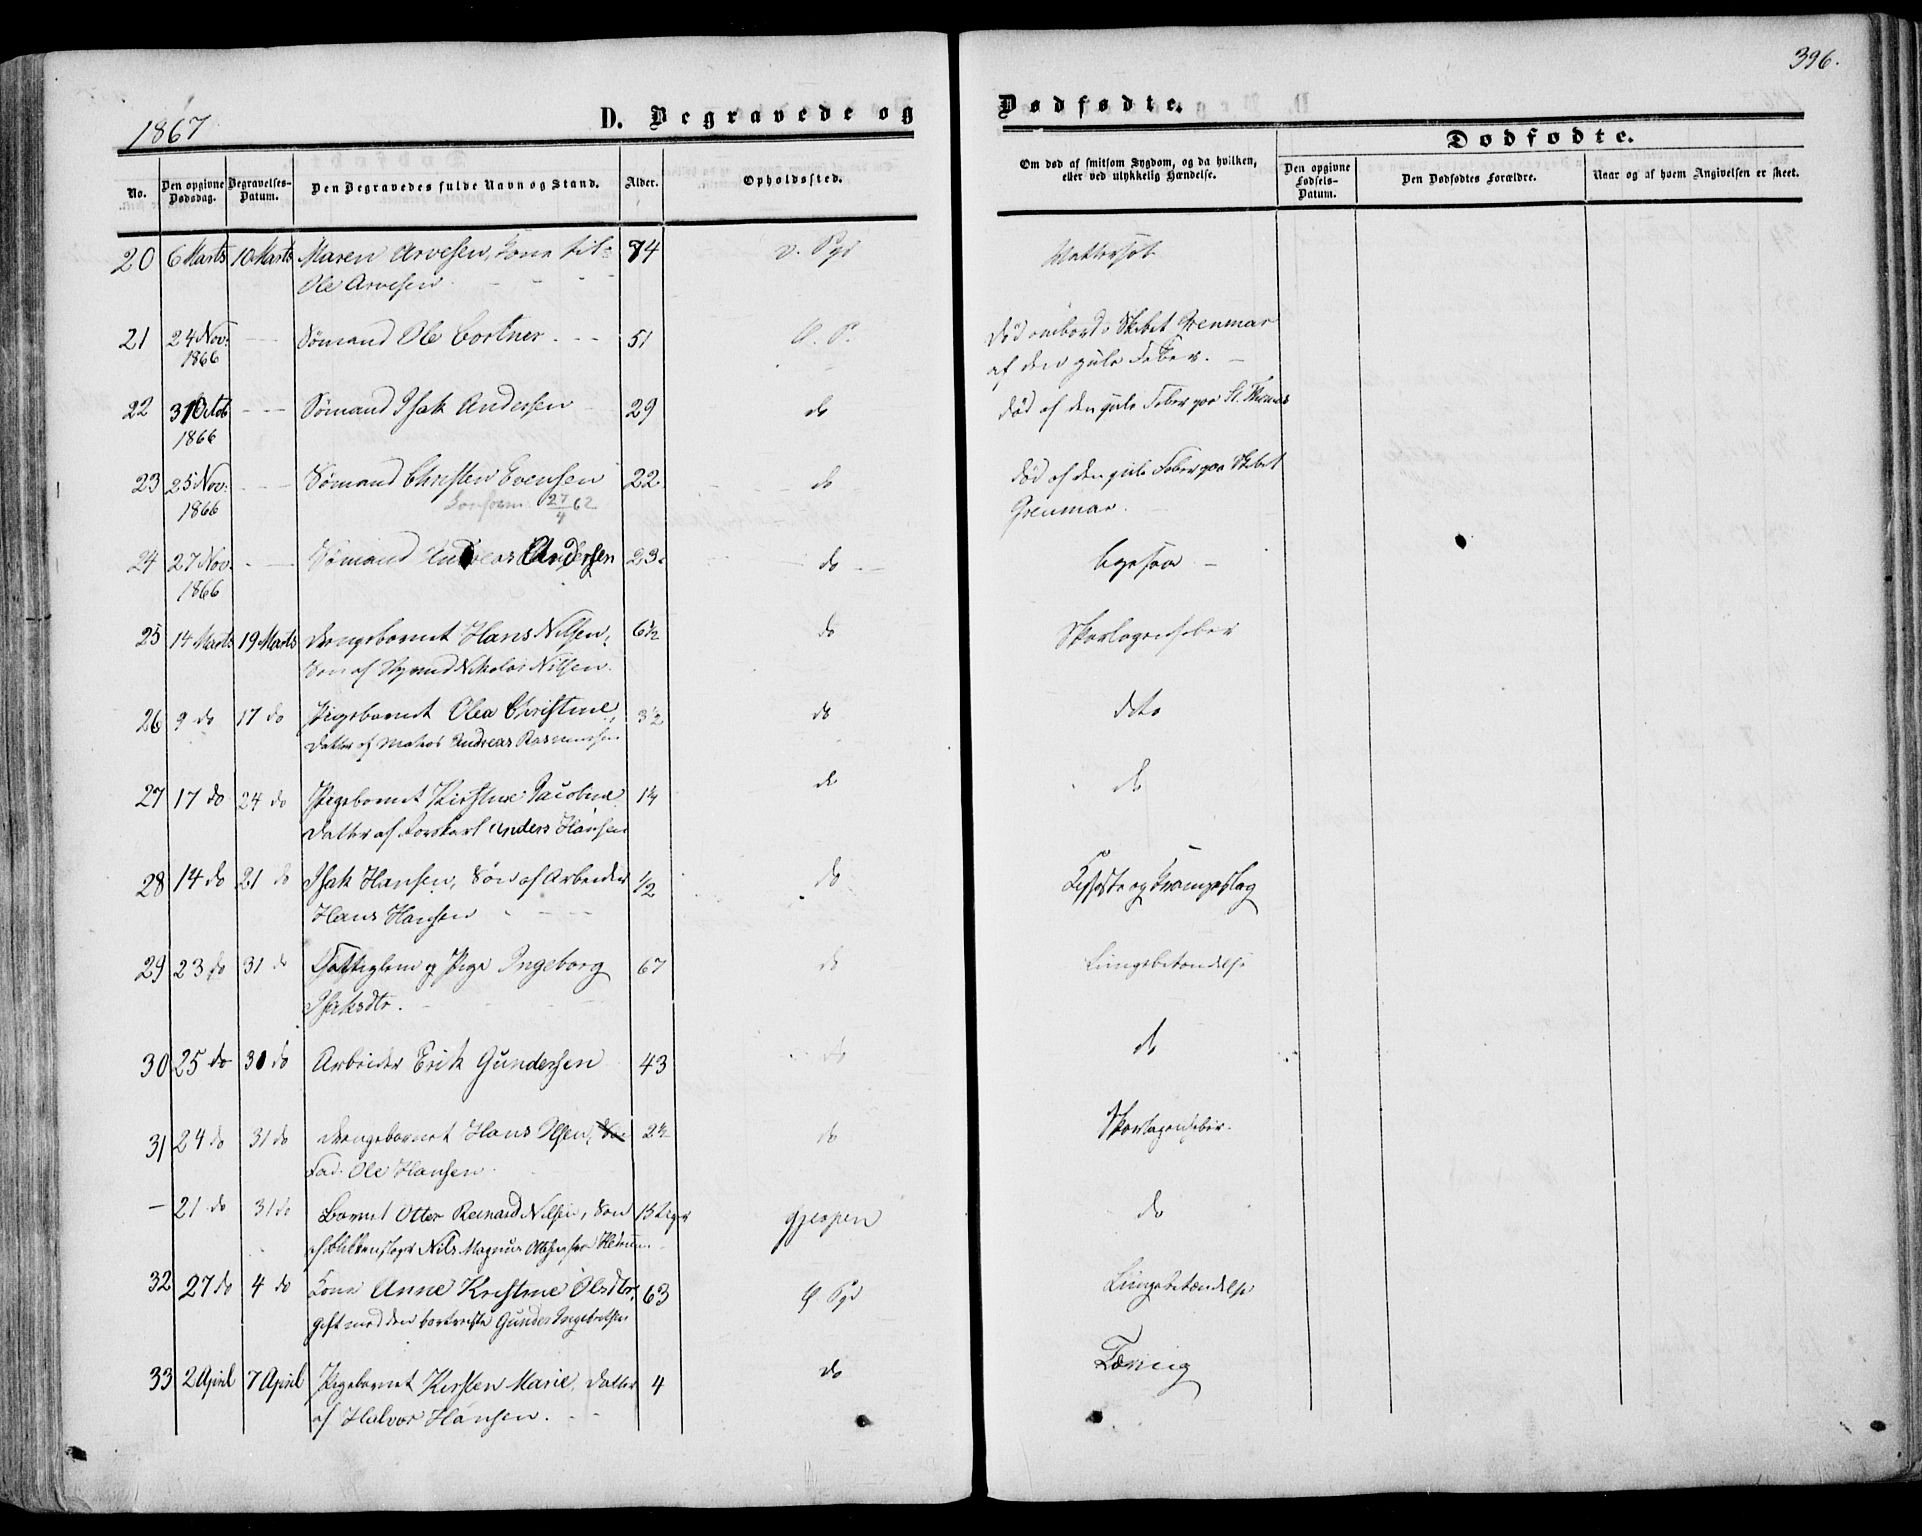 396.
1867
D. Begravede og
Dødfødte.
No.
Den opgivne Dødsdag.
Begravelses-Datum.
Den Begravedes fulde Navn og Stand.
Alder.
Opholdssted.
Om død af smitsom Sygdom, og da hvilken,
eller ved ulykkelig Hændelse.
Dødfødte.
Den opgivne Fødsels-Datum.
Den Dødfødtes Forældre.
Naar og af hvem Angivelsen er skeet.
20 6 Marts 10 Marts Maren Arvesen, Kone til 74
Ole Arvesen
21 24 Nov: Sømand Ole Cortner 51 død ombord i Skibet Grenmar
1866 af den gule Feber.
22 31 Octob Sømand Isak Andersen 29 do død af den gule Feber paa St. Thomas
1866
23 25 Nov: Sømand Christen Evensen 22 do død af den gule Feber paa Skibet
1866 Confirm 27/4 62 Grenmar
24 27 Nov. Sømand Andreas Andersen 23 do ligesaa
1866
25 14 Marts 19 Marts Drengebarnet Hans Nilsen, 6½ do Skarlagensfeber
Søn af Nikolai Nilsen.
26 9 do 17 do Pigebarnet Olea Christine 3½ do dito
Datter af Matros Andreas Rasmussen
27 17 do 24 do Pigebarnet Kirstine Jacobine 1¼ do do
Datter af Anders Hansen
28 14 do 21 do Isak Hansen, Søn af Arbeider ½ do
Hans Hansen
29 23 do 31 do Fattiglem og Pige Ingeborg 67 do Lungebetændelse
Isaksdtr.
30 25 do 31 do Arbeider Erik Gundersen 43 do do
31 24 do 31 do Drengebarnet Hans Olsen, 2½ do Skarlagensfeber.
Fad. Ole Hansen.
– 21 do 31 do Barnet Otter Reinard Nilsen, Søn 15 Uger Gjerpen do
af Nils Magnus
32 27 do 4 do Kone Anne Kristine Olsdtr. 63 Lungebetændelse
gift med den bortreiste Gunder Ingebretsen
33 2 April 7 April Pigebarnet Kirsten Marie, Datter 4 do Tæring
af Halvor Hansen.